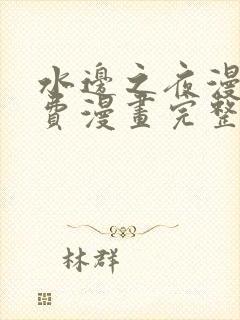 水邊之夜漫
費漫畫完整
林群